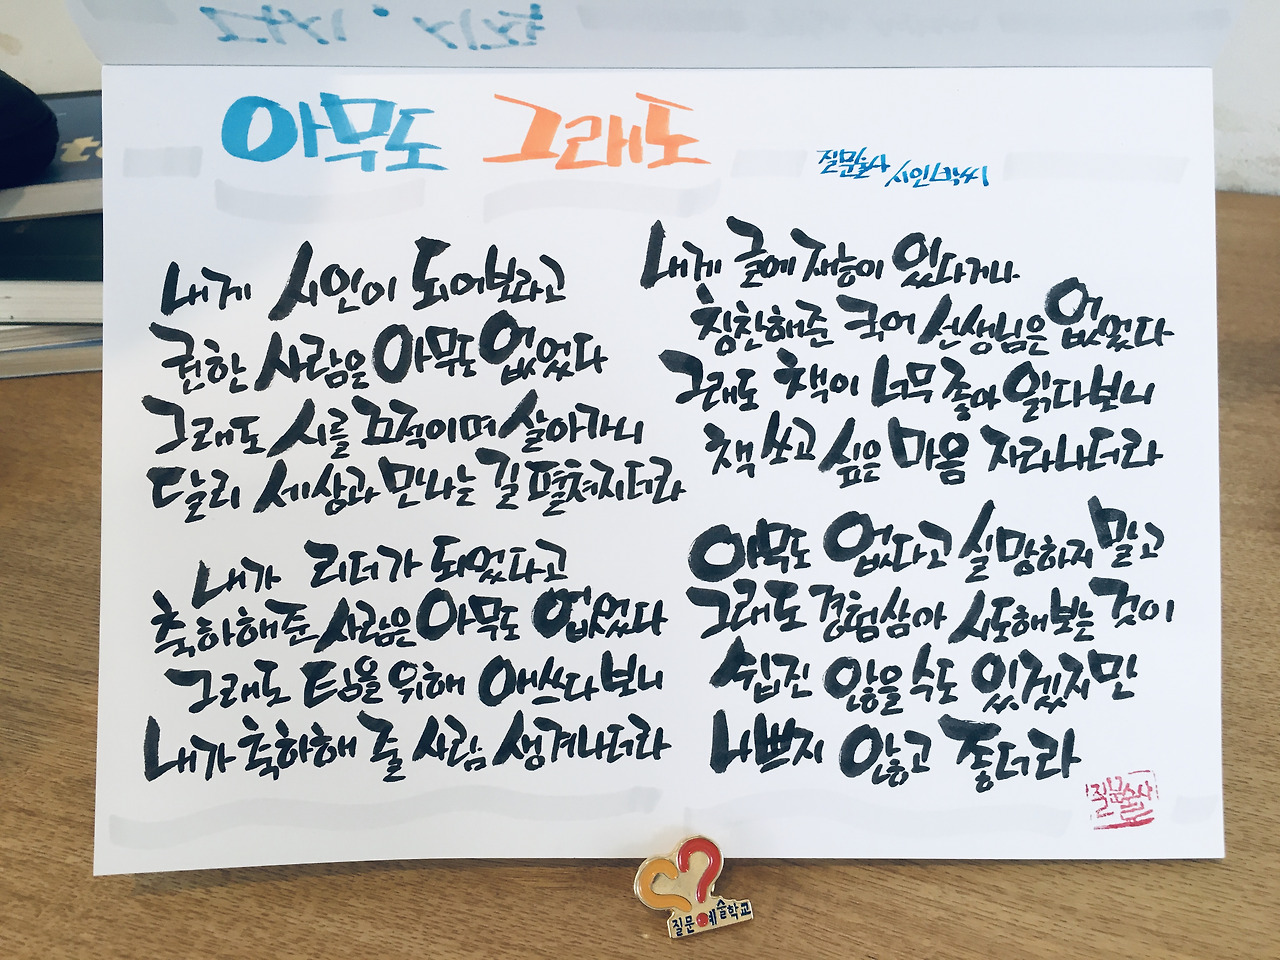 다시, 시작
아무도 그래도
질문술사 시인박씨
내게 시인이 되어보라고
권한 사람은 아무도 없었다
그래도 시를 끄적이며 살아가니
달리 세상과 만나는 길 펼쳐지더라
내가 리더가 되었다고
축하해준 사람은 아무도 없었다
그래도 팀을 위해 애쓰다보니
내가 축하해 줄 사람 생겨나더라
내게 글에 재능이 있다거나
칭찬해준 국어 선생님은 없었다
그래도 책이 너무 좋아 읽다보니
책 쓰고 싶은 마음 자라나더라
아무도 없다고 실망하지 말고
그래도 경험삼아 시도해보는 것이
쉽진 않을 수도 있겠지만
나쁘지 않고 좋더라
질문술사
질문예술학교